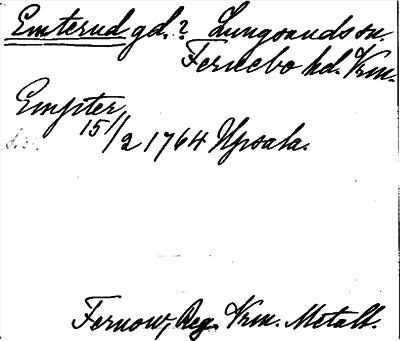 Emterud gd.? Lungsunds sn.
Fernebo hd. Vrm.
Empter,
15/2 1764 Upsala.
Fernow, Reg. Vrm. Metall.